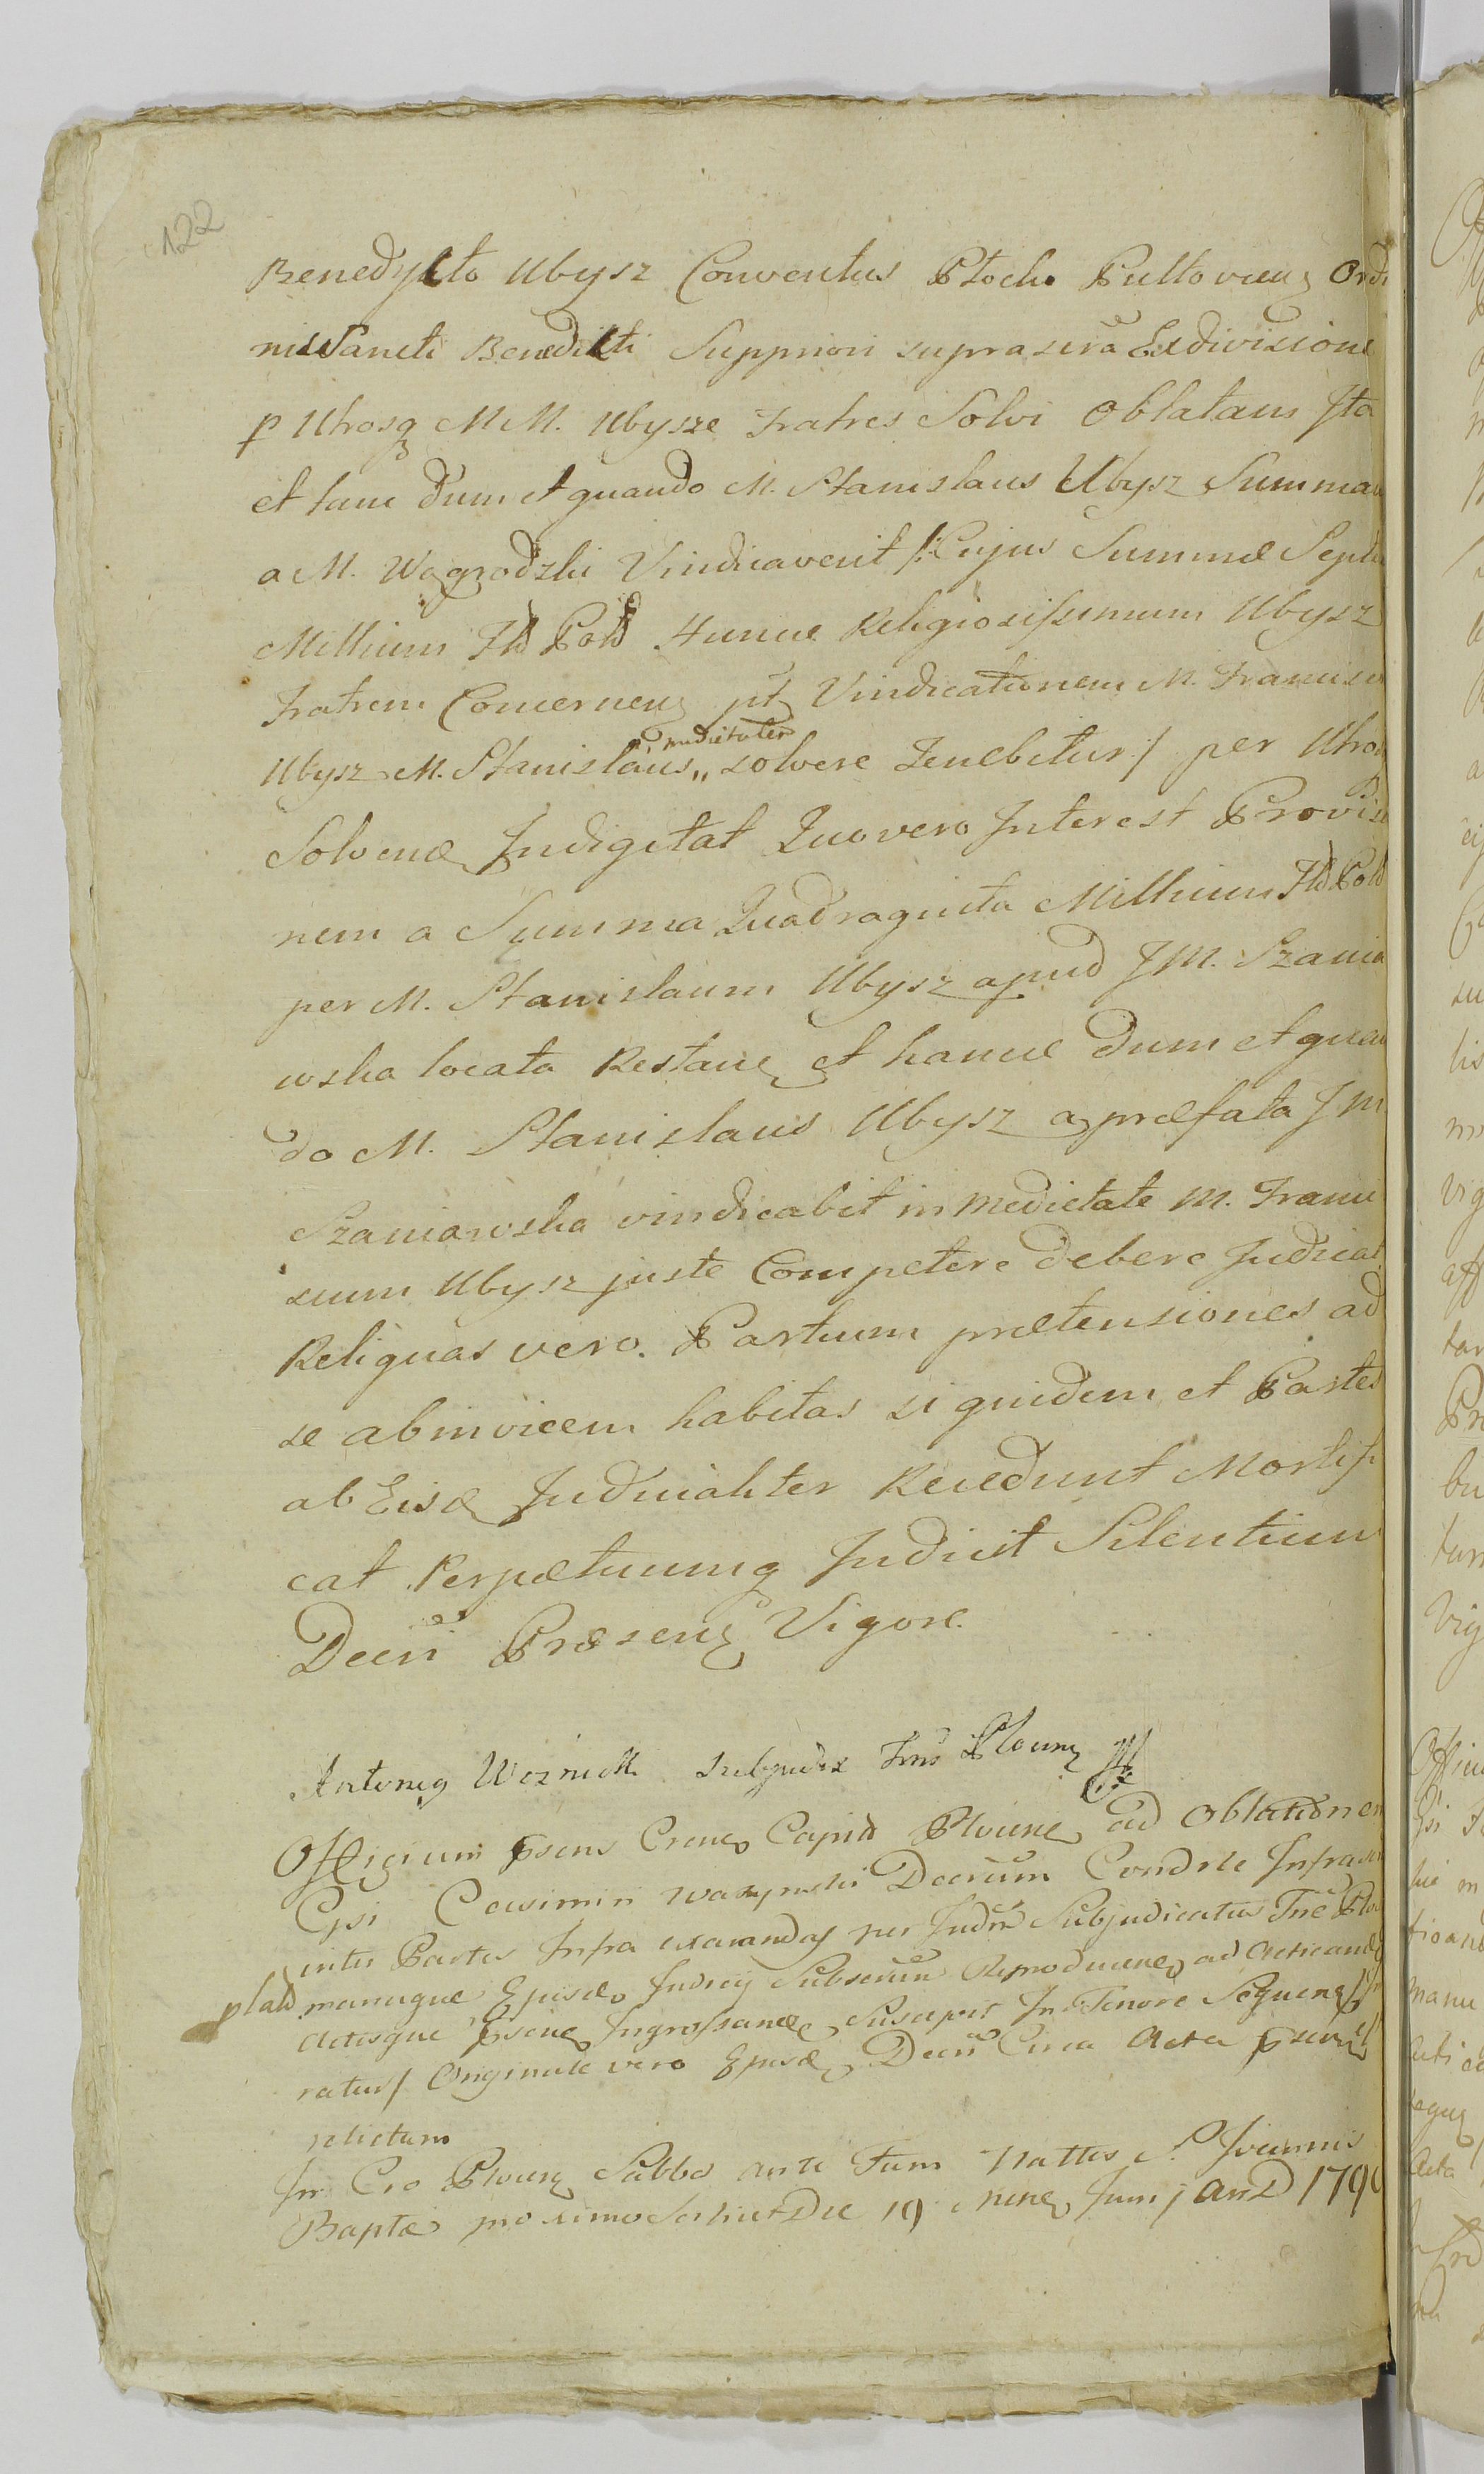 122
Benedykto Ubysz Conventus Płocko Pultovien Ordi
nis Sancti Benedikti Suppriori suprascrã Exdivisione
p Utrosq M M. Ubysze Fratres Solvi Oblatam Ita
et tam dum et quando M. Stanislaus Ubysz Summam
a M. Wągrodzki Vindicaverit /: Cujus Summæ Septe
Millium Fld Pold Hunce Religiosissimum Ubysz
Fratrem Concernen pt Vindicationem M. Francisco
Ubysz M. Stanislaus „ medietatem solvere Tenebitur :/ per Utros
Solvend Indigitat Quo vero Interest Provisio
nem a Summa Quadraginta Millium Fld Pold
per M. Stanislaum Ubysz apud J M. Szania
wska locata Restan et hance dum et quan
do M. Stanislaus Ubysz a præfata J M
Szaniawska vindicabit in Medietate M. Franci
scum Ubysz juste Competere debere Judicat
Reliquas vero. Partium prætensiones ad
se abinvicem habitas siquidem et Partes
ab Eisd Judicialiter Recedunt Mortifi
cat Perpetuumq Indicit Silentium
Decri Præsen Vigore.
Antonig Woznicki Subjudex Trris Plocen
Officium psens Crense Capit Plocine ad Oblationem
Gsi Casimiri Decrum Condrle Infrascr
inter Partes Infra exarandas per Judm Subjudicatus Trre Ploc
plald manuque Ejusd Judicij Subscrum Reproducen ad Acticand
Actisque psene Ingrossand Suscepit In Tenore Sequen
ratur/ Originale vero Ejusd Decri Circa Acta psen
relictum
In Cro Plocen Sabbo ante Fum Nattis S. Joannis
Baptæ proximo Die 19 Mens Junij An D 179